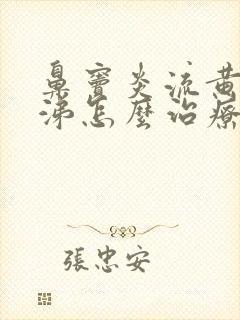 鼻竇炎流黄
涕怎麼治療
張忠安